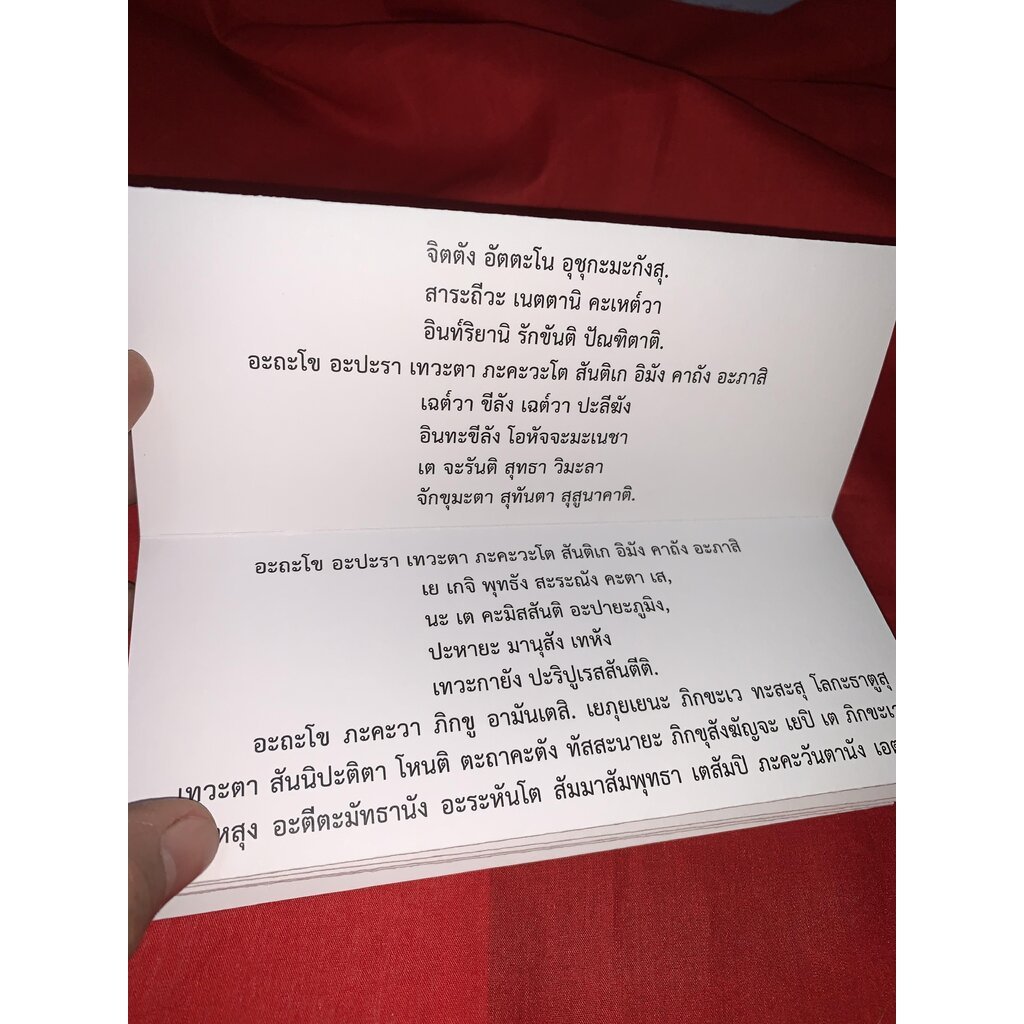 จิตตัง อัตตะโน อุชุกะมะกังสุ.
สาระถีวะ เนตตานิ คะเหต๎วา
อินท๎ริยานิ รักขันติ ปัณฑิตาติ.
อะถะโข อะปะรา เทวะตา ภะคะวะโต สันติเก อิมัง คาถัง อะภาสิ
เฉต๎วา ขีลัง เฉต๎วา ปะลีฆัง
อินทะขีลัง โอหัจจะมะเนชา
เต จะรันติ สุทธา วิมะลา
จักขุมะตา สุทันตา สุสูนาคาติ.
อะถะโข อะปะรา เทวะตา ภะคะวะโต สันติเก อิมัง คาถัง อะภาสิ
เย เกจิ พุทธัง สะระณัง คะตา เส,
นะ เต คะมิสสันติ อะปายะภูมิง,
ปะหายะ มานุสัง เทหัง
เทวะกายัง ปะริปูเรสสันตีติ.
อะถะโข ภะคะวา ภิกขู อามันเตสิ. เยภุยเยนะ ภิกขะเว ทะสะสุ โลกะธาตูสุ
เทวะตา สันนิปะติตา โหนติ ตะถาคะตัง ทัสสะนายะ ภิกขุสังฆัญจะ เยปิ เต ภิกขะเว
หสุง อะตีตะมัทธานัง อะระหันโต สัมมาสัมพุทธา เตสัมปิ ภะคะวันตานัง